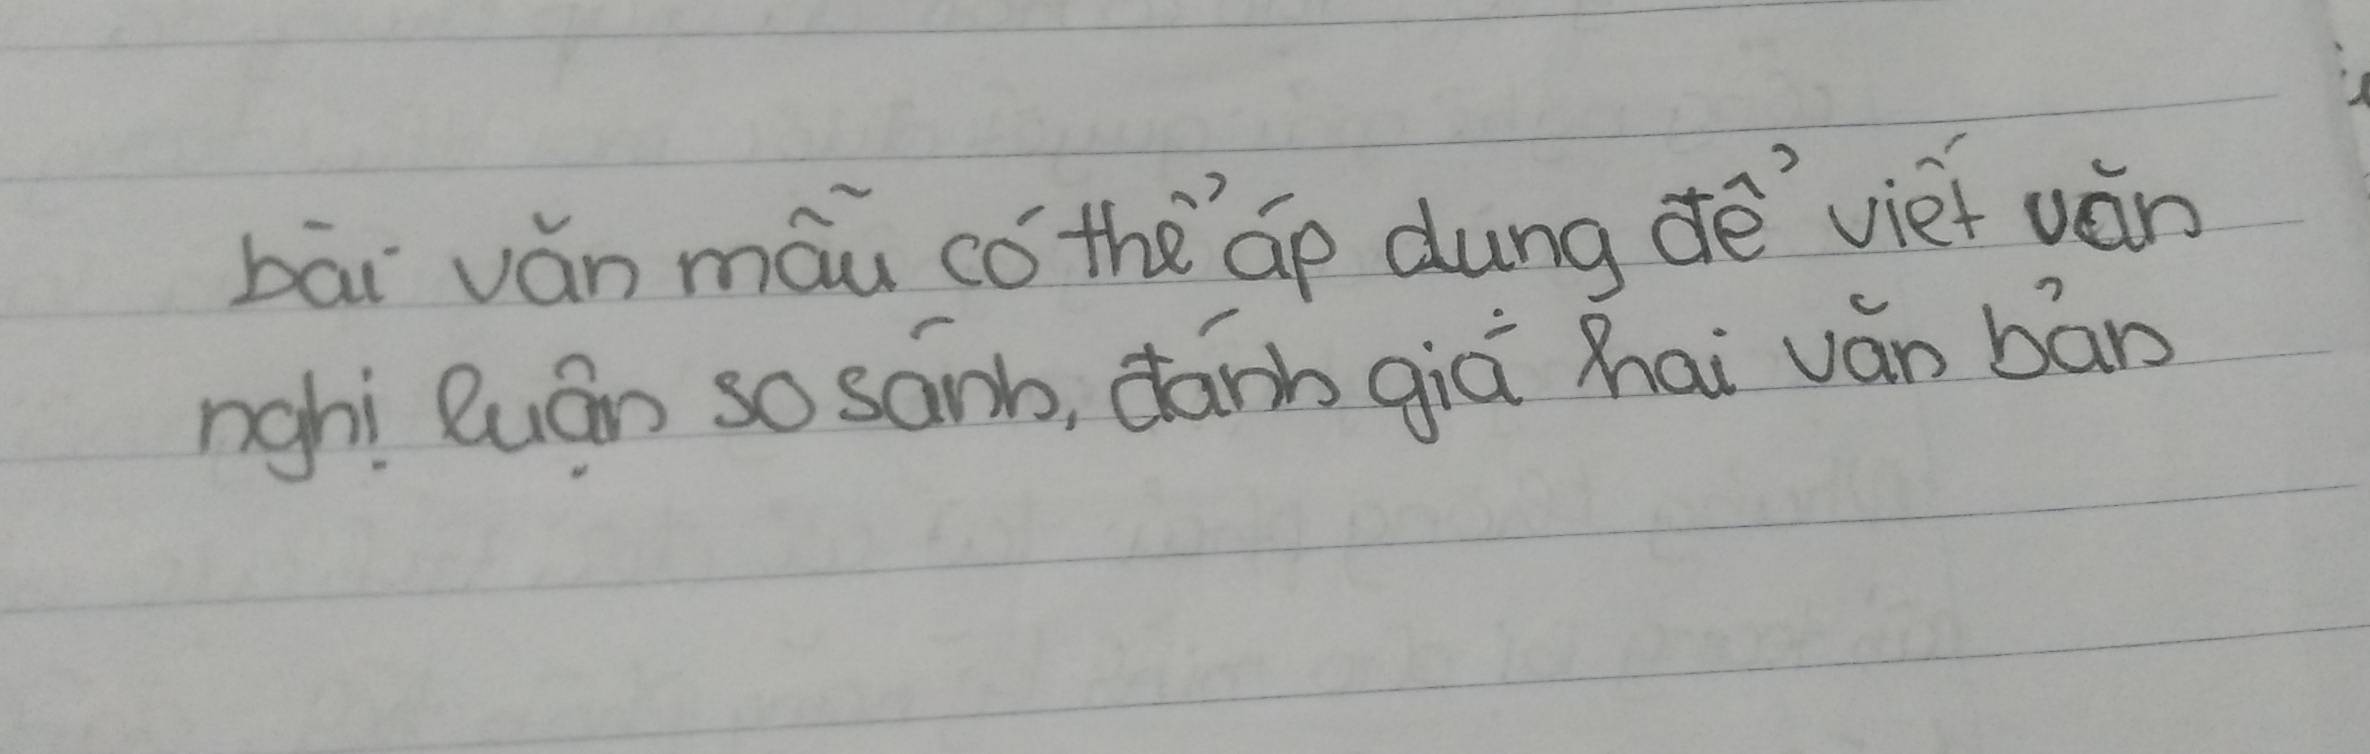 bài văn mẫu có thể áp dung để viết văn
nghị luận so sánh, đánh giá hai văn bản